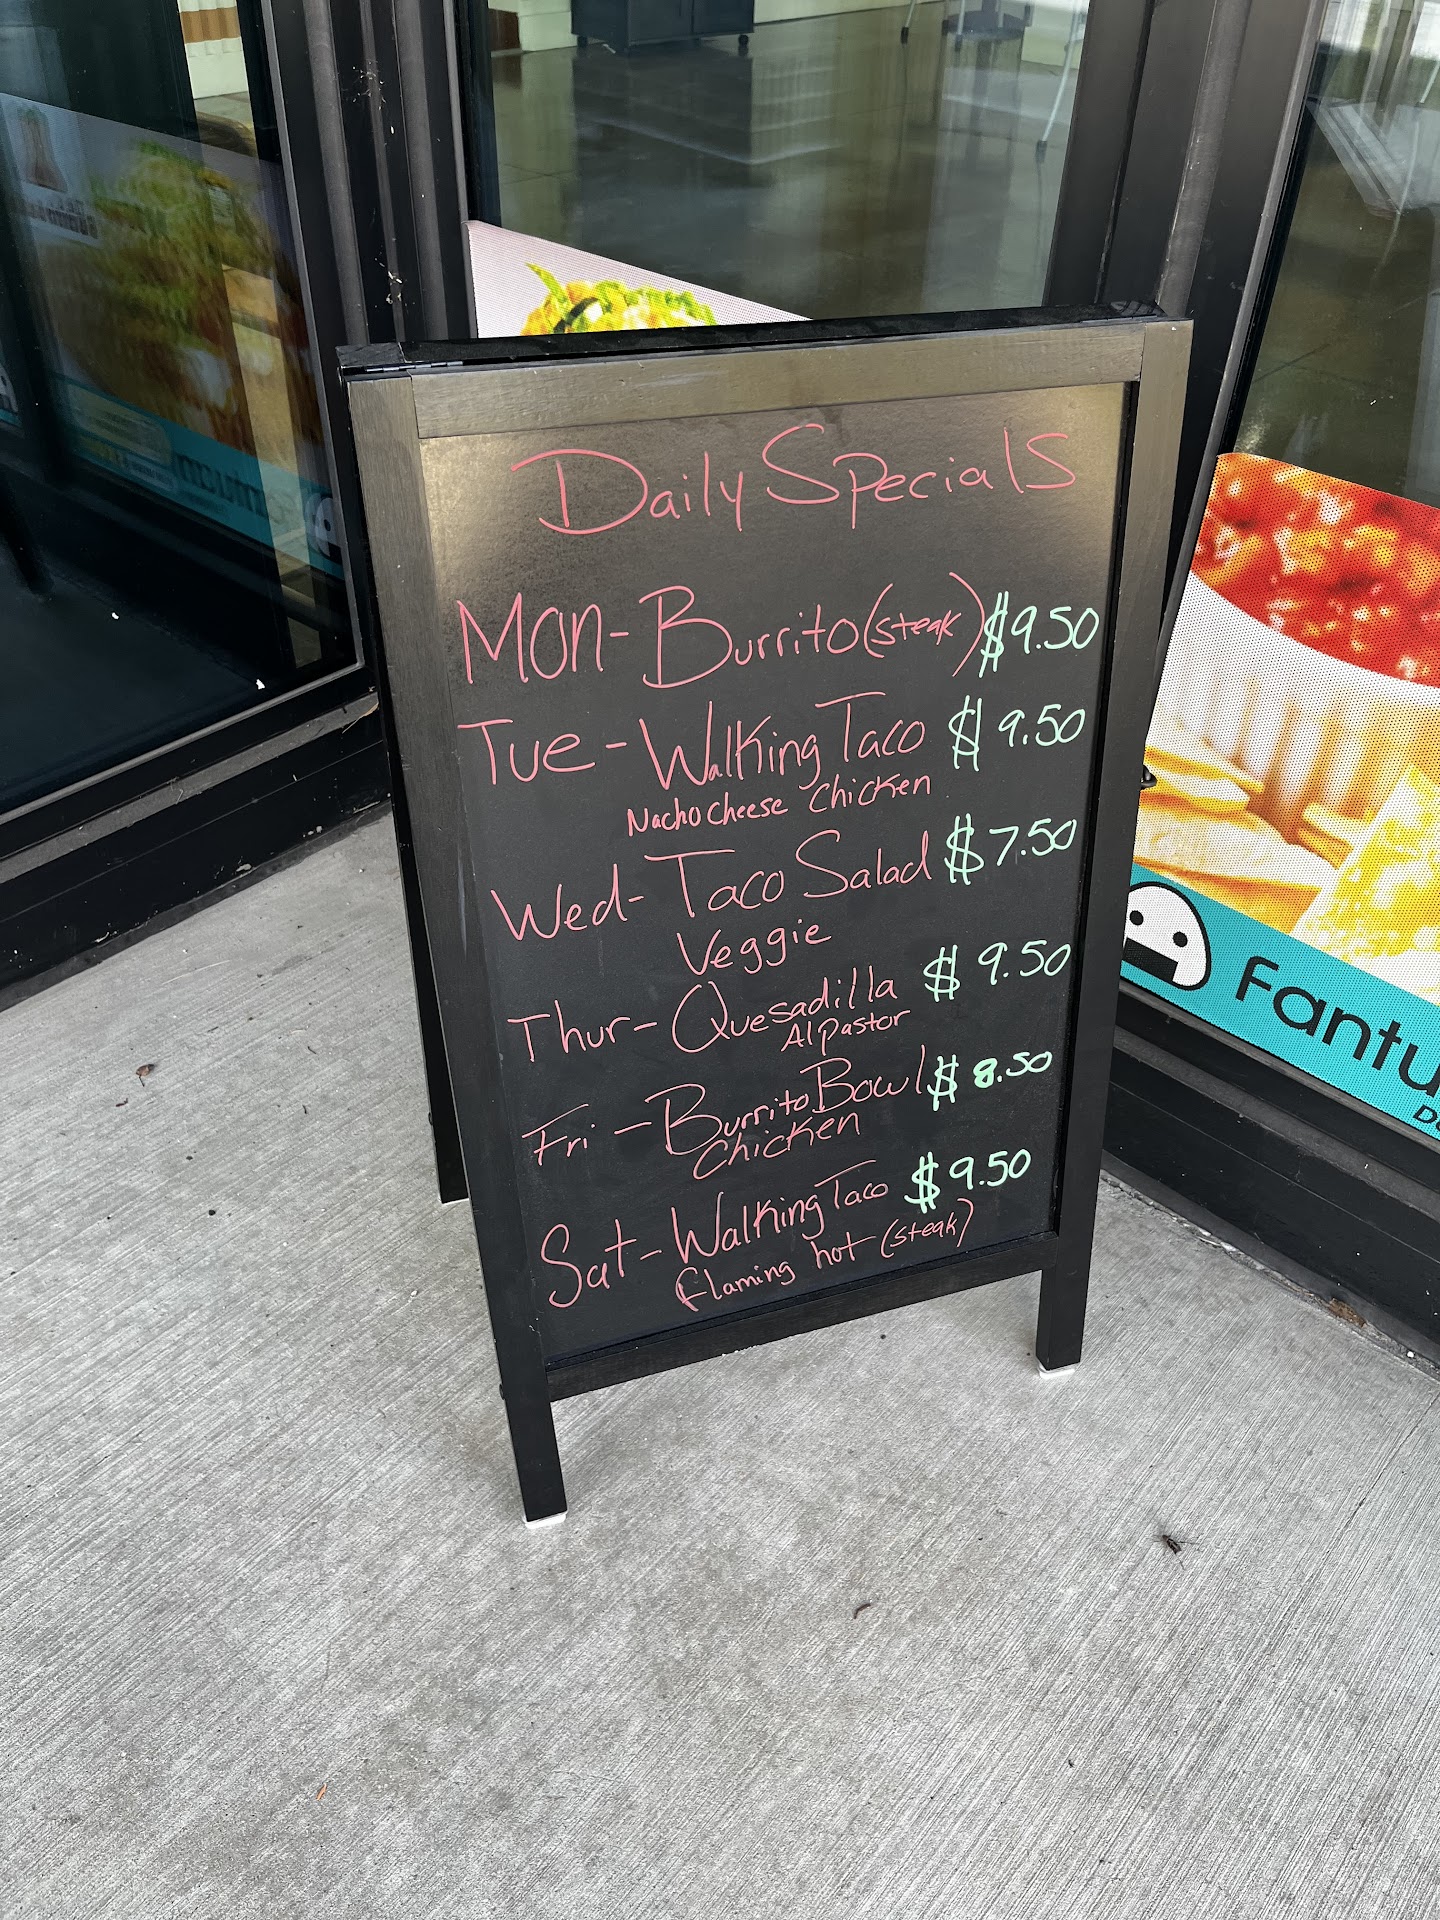 Daily Specials
Mon- Burrito (steak) $9.50
Tue - Walking Taco $9.50
Nacho cheese Chicken
Wed- Taco Salad $7.50
Veggie
Thur- Quesadilla $9.50
Al pastor
Fri - Burrito Bowl $8.50
Chicken
Sat- Walking Taco $9.50
flaming hot (steak)
Fantu